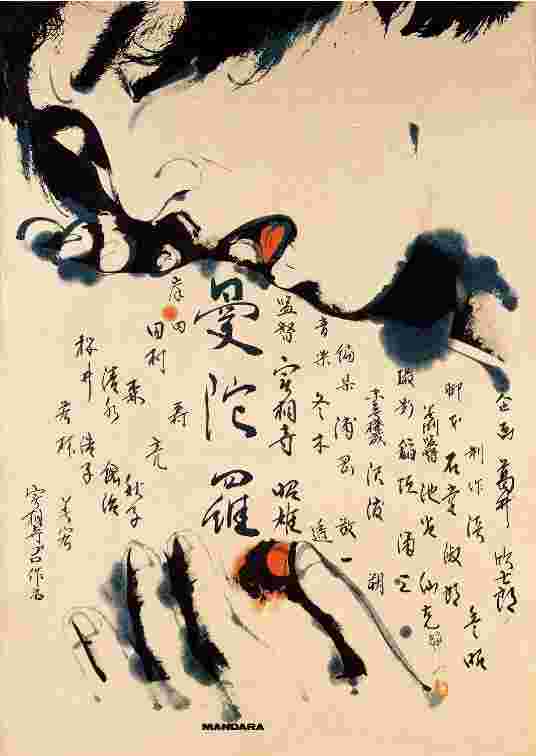 企画 葛井欣士郎
制作 淡 豊昭
脚本 石堂淑朗
美術 池谷仙克
撮影 稲垣涌三
編集 浦岡敬一
音楽 冬木透
監督 実相寺昭雄
曼陀羅
岸田
田村 亮
森 秋子
清水紘治
桜井浩子
若林美宏
MANDARA